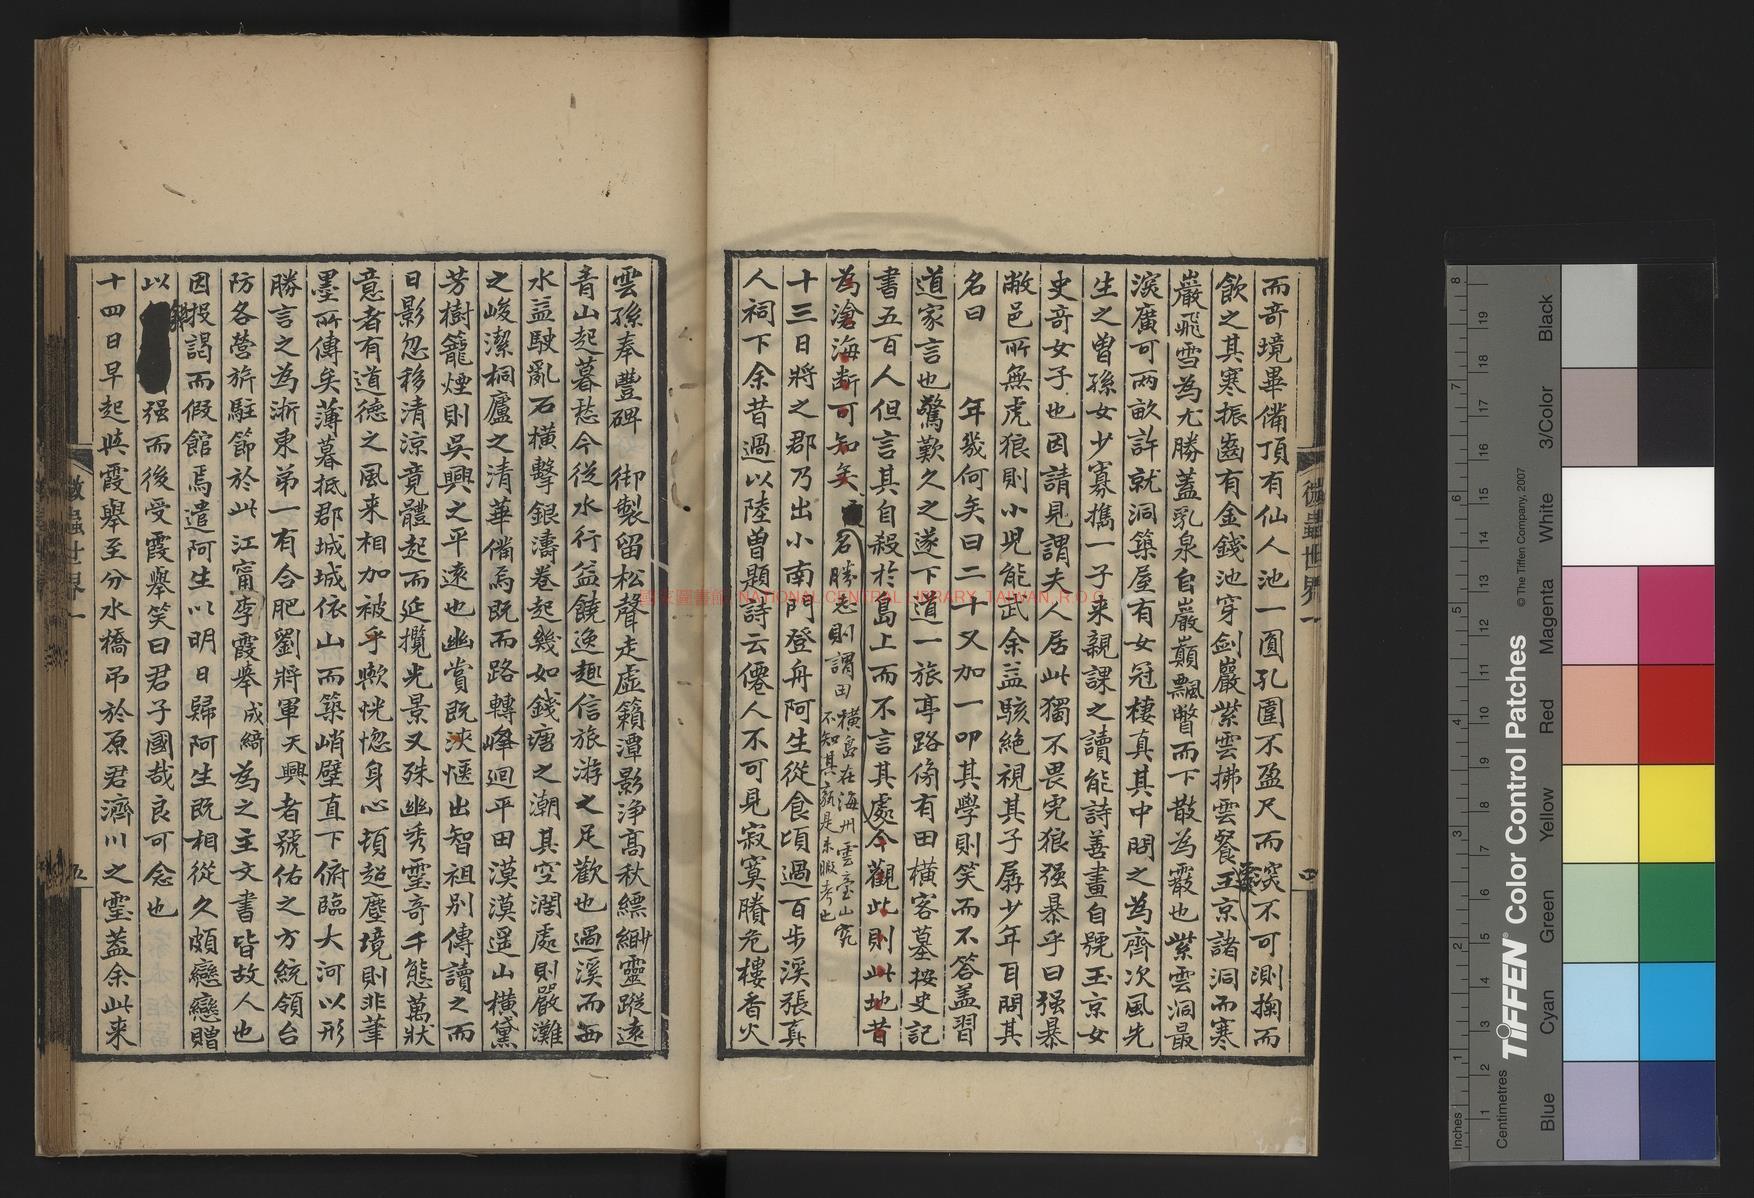 而奇境畢備頂有仙人池一圓孔圍不盈尺而深不可測掬而
飲之其寒振齒有金錢池穿劍巖紫雲拂雲餐玉京諸洞而寒
巖飛雪為尤勝蓋乳泉自巖巔飄瞥而下散為霰也紫雲洞最
深廣可兩畝許就洞築屋有女冠棲真其中問之為齊次風先
生之曽孫女少寡携一子来親課之讀能詩善畫自號玉京女
史奇女子也因請見謂夫人居此獨不畏虎狼强暴乎曰强暴
敝邑所無虎狼則小児能武余益駭絶視其子孱少年耳問其
名曰　年幾何矣曰二十又加一叩其學則笑而不答盖習
道家言也驚歎久之遂下道一旅亭路傍有田橫客墓按史記
書五百人但言其自殺於島上而不言其處今觀此則此地昔
為滄海斷可知矣名勝志則謂田橫島在海州雲臺山究
不知其孰是未暇考也
十三日將之郡乃出小南門登舟阿生從食頃過百步溪張真
人祠下余昔過以陸曽題詩云僊人不可見寂寞賸危樓香火
雲孫奉豐碑　御製留松聲走虛籟潭影浄高秋縹緲靈蹤遠
青山起暮愁今從水行益饒逸趣信旅游之足歡也過溪而西
水益駛亂石橫擊銀濤卷起幾如錢塘之潮其空濶處則嚴灘
之峻潔桐廬之清華備焉既而路轉峰迴平田漠漠遥山橫黛
芳樹籠煙則吳興之平遠也幽賞既浹愜出智祖别傳讀之而
日影忽移清涼竟體起而延攬光景又殊幽秀靈奇千態萬狀
意者有道德之風来相加被乎歘恍惚身心頓超塵境則非筆
墨所傳矣薄暮抵郡城城依山而築峭壁直下俯臨大河以形
勝言之為浙東弟一有合肥劉將軍天興者號佑之方統領台
防各營旂駐節於此江甯李霞舉成綺為之主文書皆故人也
因投謁而假館焉遣阿生以明日歸阿生既相從久頗戀戀贈
以强而後受霞舉笑曰君子國哉良可念也
十四日早起與霞舉至分水橋弔於原君濟川之靈蓋余此来
微蟲世界一
四
微蟲世界一
五
國家圖書館 NATIONAL CENTRAL LIBRARY, TAIWAN, R.O.C.
TIFFEN® Color Control Patches
© The Tiffen Company, 2007
Inches
Centimetres
Blue
Cyan
Green
Yellow
Red
Magenta
White
3/Color
Black